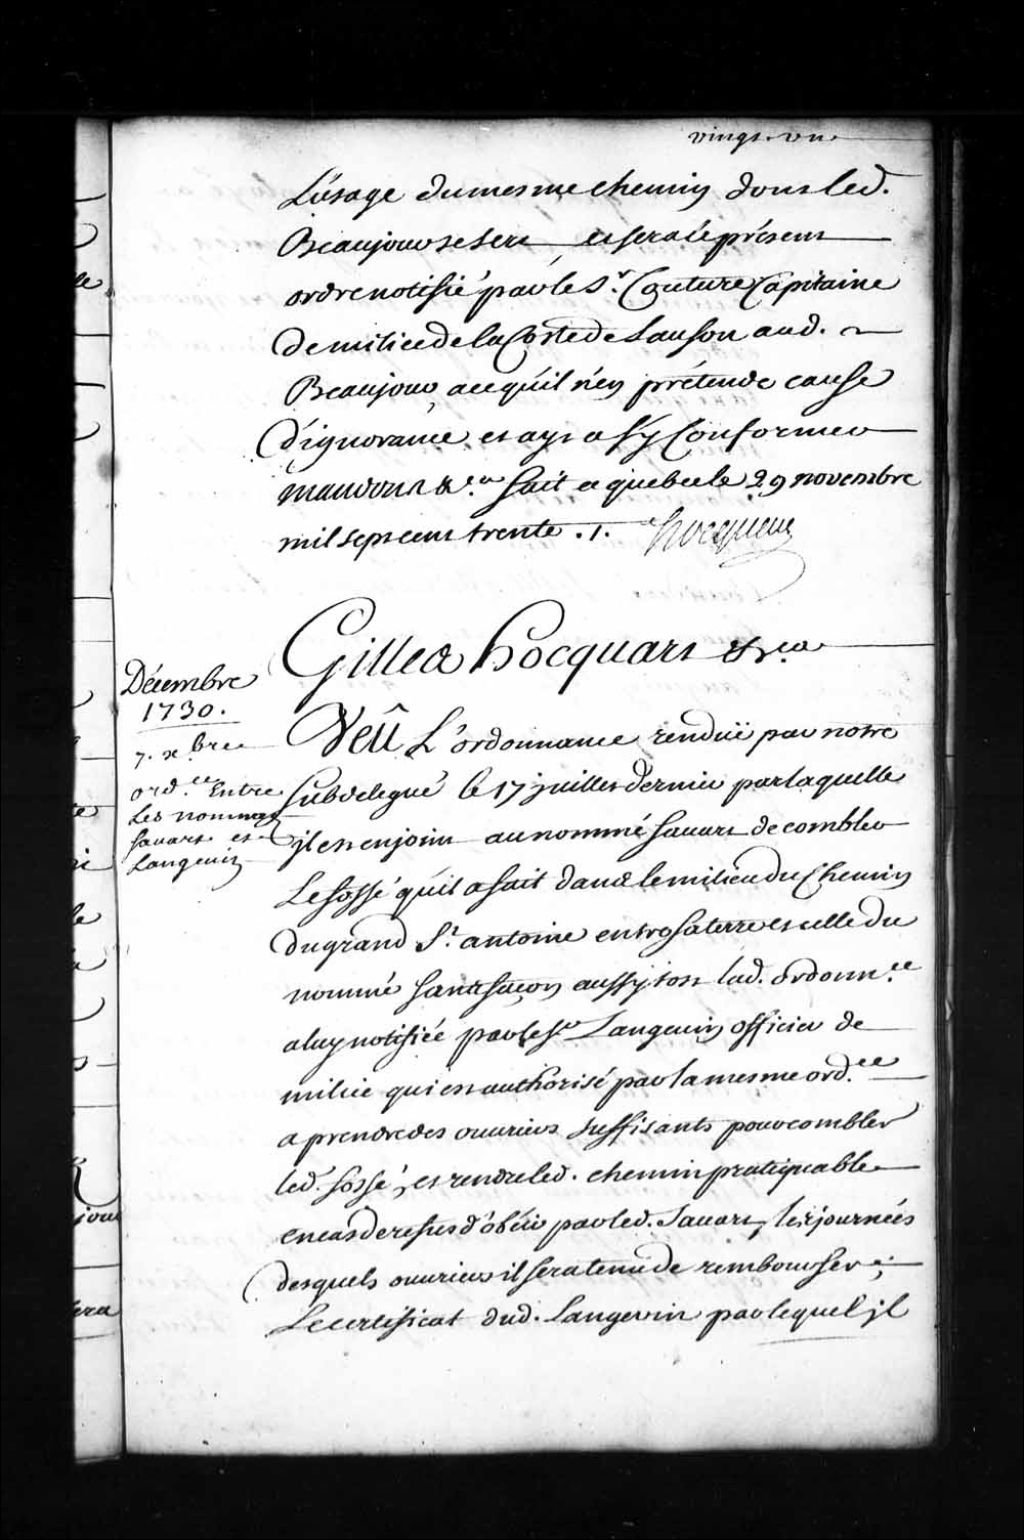 vingt-un
L'usage du mesme chemin dont led.
Beaujour se sert et sera le présent
ordre notifié par le Sr. Couture Capitaine
de milice de la Coste de Lauson aud.
Beaujour, ace qu'il n'en prétende cause
d'ignorance et ayt a s'y Conformer
mandons &ca. fait a quebec le 29 novembre
mil sept cent trente ./. hocquart
Gilles hocquart &ca
Décembre
1730.
7. xbre
ord.ce Entre
Les nommez
savart et
Langevin
Veû L'ordonnance renduë par notre
subdelegué le 17 juillet dernier par laquelle
jl est enjoint au nommé savart de combler
Le fossé qu'il a fait dans le milieu du Chemin
du grand St. antoine entre sa terre et celle du
nommé sansfaçon aussytost lad. ordonn.ce
a luy notifiée par le Sr Langevin officier de
milice qui est authorisé par la mesme ord.ce
a prendre des ouvriers suffisants pour combler
led. fossé, et rendre led. chemin pratiquable
en cas de refus d'obéir par led. Savart, les journées
desquels ouvriers il sera tenu de rembourser;
Le certificat dud. Langevin par lequel jl